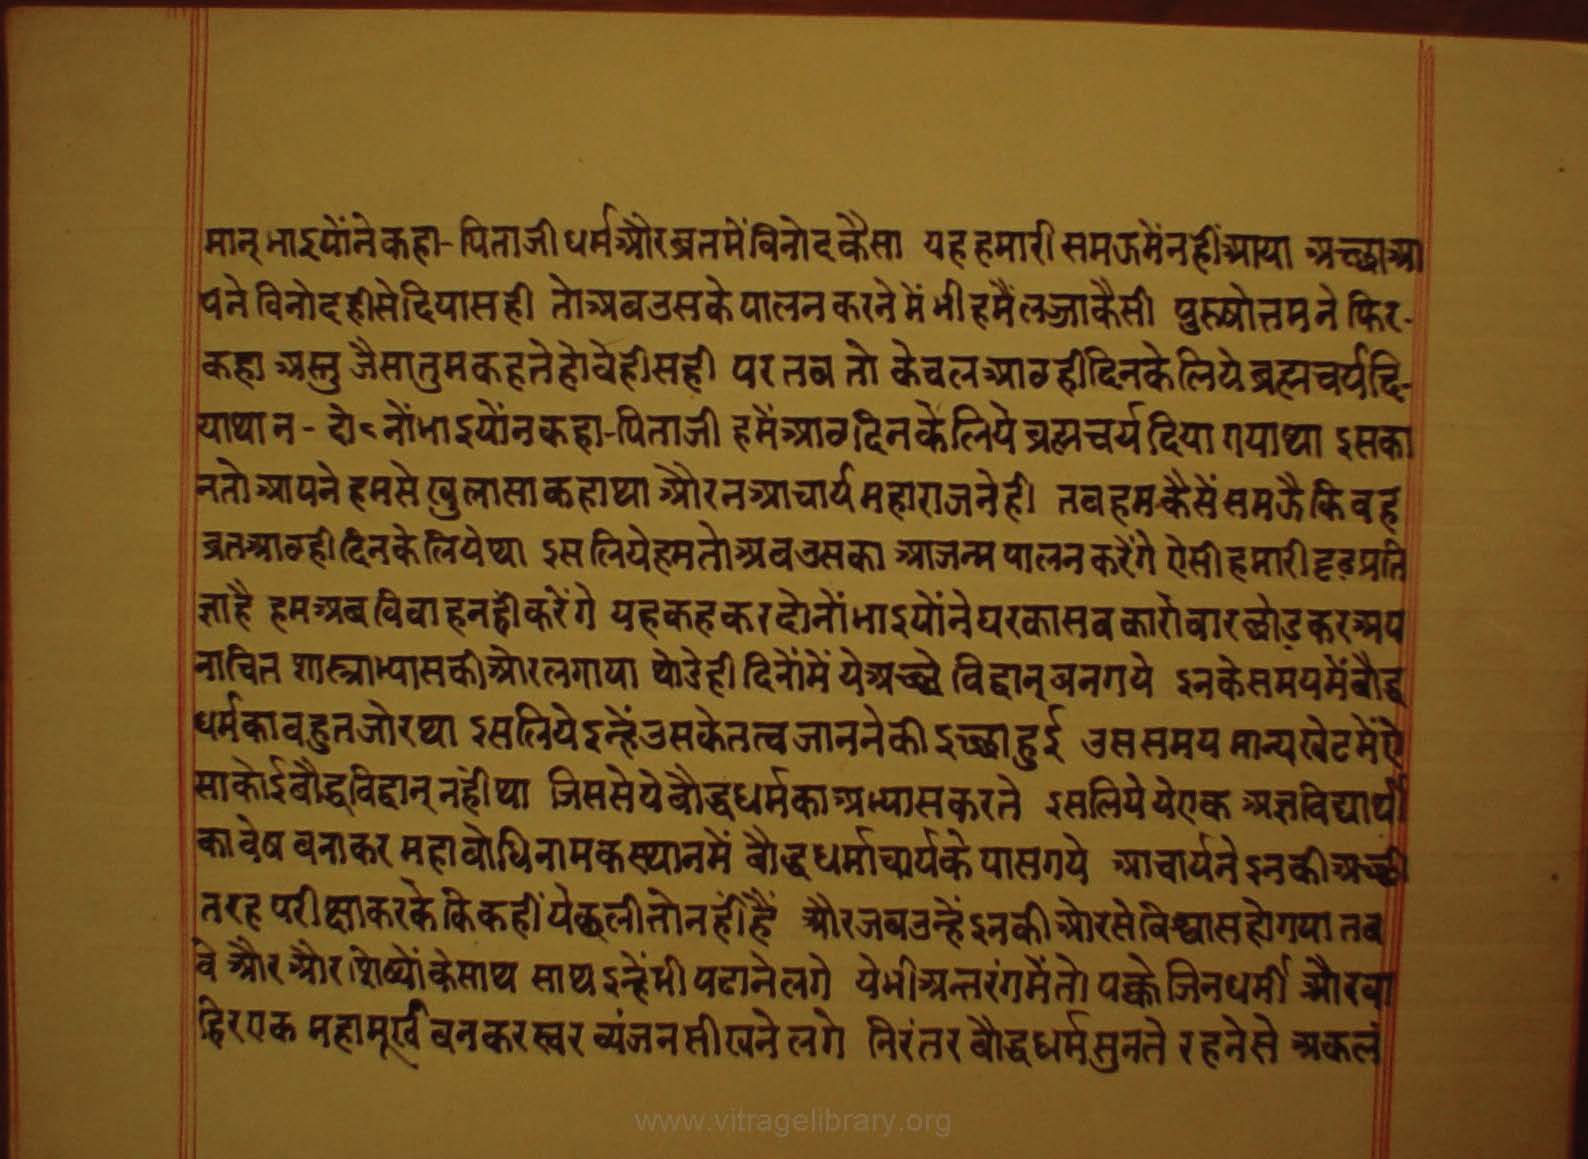 मान् भाइयोंने कहा- पिताजी धर्म और ब्रतमें विनोद कैसा यह हमारी समझमें नहीं आया अच्छा आ
पने विनोदहीसे दिया सही तो अब उसके पालन करने में भी हमैं लज्जा कैसी पुरुषोत्तमने फिर-
कहा अस्तु जैसा तुम कहते हो वेही सही पर तब तो केवल आठहीदिनके लिये ब्रह्मचर्य दि-
याथा न- दोनों भाइयोंन कहा- पिताजी हमें आठ दिनके लिये ब्रह्मचर्य दिया गया था इसका
नतो आपने हमसे खुलासा कहाथा और न आचार्य महाराजने ही तब हम कैसें समझै कि वह
व्रत आठही दिनके लिये था इसलिये हमतो अब उसका आजन्म पालन करेंगे ऐसी हमारी दृढ़ प्रति
ज्ञा है हम अब विवाह नहीं करेंगे यह कहकर दोनों भाइयोंने घरका सब कारोबार छोड़कर अप
नाचित शास्त्राभ्यासकी ओर लगाया थोडेही दिनोंमें ये अच्छे विद्वान् बनगये इनके समयमें बौद्ध
धर्मका बहुत जोर था इसलिये इन्हें उसके तत्व जाननेकी इच्छा हुई उस समय मान्यखेटमें ऐ
सा कोई बौद्ध विद्वान् नहीं था जिससे ये बौद्धधर्मका अभ्यास करते इसलिये ये एक अज्ञ विद्यार्थी
का वेष बनाकर महाबोधिनामक स्थानमें बौद्धधर्माचार्यके पास गये आचार्यने इनकी अच्छी
तरह परीक्षाकरके कि कहीं ये छली तो नहीं हैं और जब उन्हें इनकी ओरसे विश्वास होगया तब
वे और और शिष्योंके साथ साथ इन्हें भी पढाने लगे ये भी अन्तरंगमें तो पक्के जिनधर्मी और बा
हिर एक महामूर्ख बनकर स्वर व्यंजन सीखने लगे निरंतर बौद्धधर्म सुनते रहनेसे अकलं
www.vitragelibrary.org